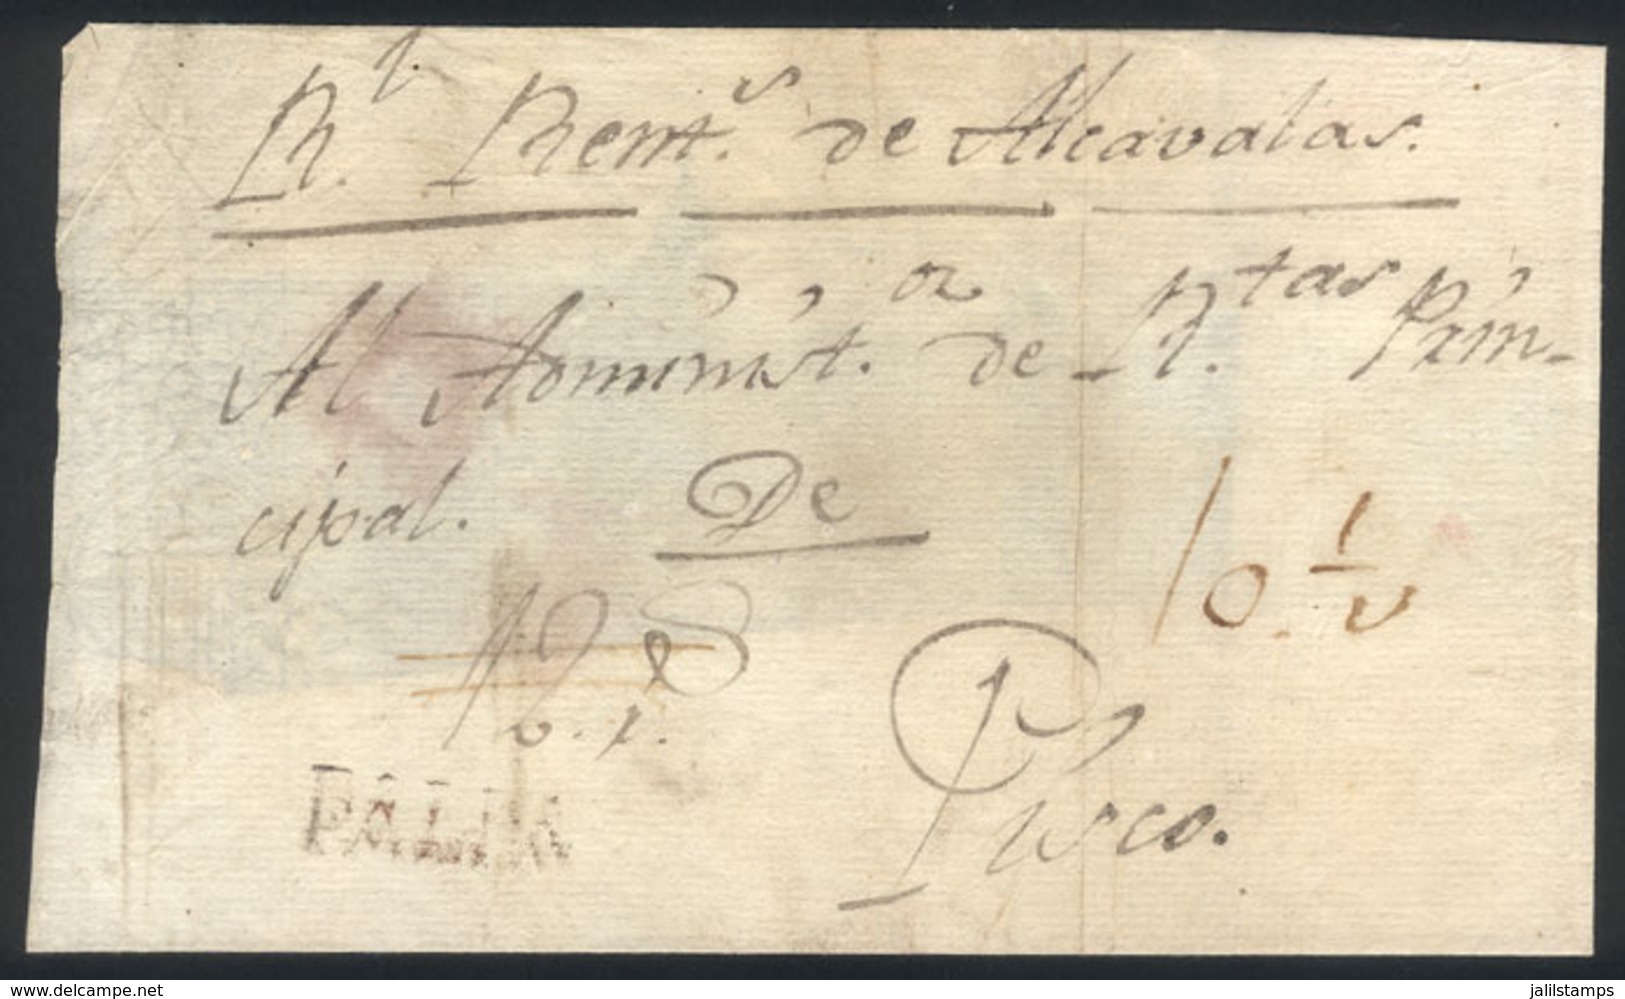 Rl. Rent.s de Alcavalas.
Al Administ.or de R.tas Prin-
cipal. De
10 1/2
Pisco.
www.delcampe.net
jalilstamps